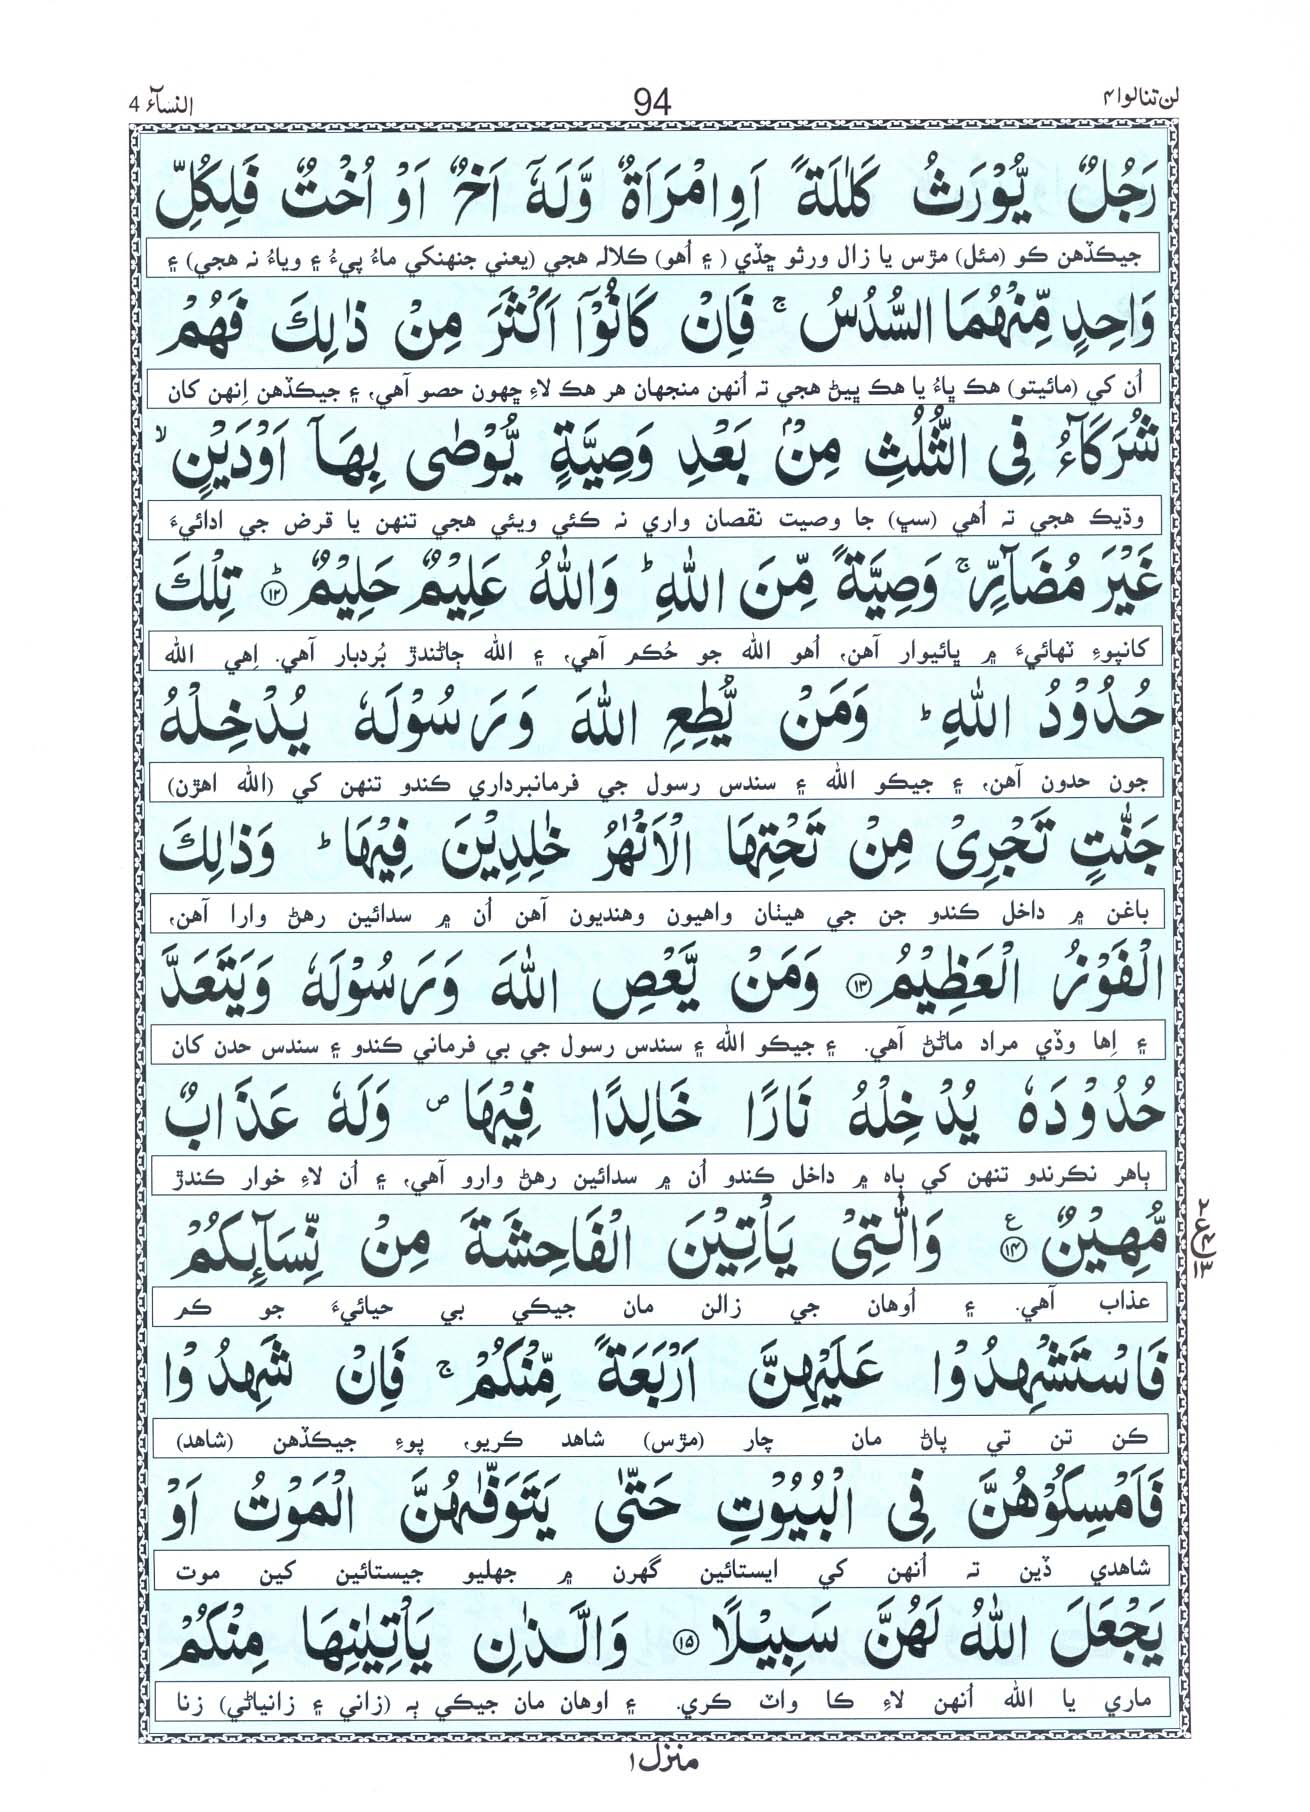 لن تنالوا ۴ 94 النسآء 4
رَجُلٌ يُّوْرَثُ كَلٰلَةً اَوِ امْرَاَةٌ وَّلَهٗٓ اَخٌ اَوْ اُخْتٌ فَلِكُلِّ
جيڪڏهن ڪو (مئل) مڙس يا زال ورثو ڇڏي ( ۽ اُهو) ڪلالہ هجي (يعني جنهنکي ماءُ پيءُ ۽ وياءُ نہ هجي) ۽
وَاحِدٍ مِّنْهُمَا السُّدُسُ ۚ فَاِنْ كَانُوْٓا اَكْثَرَ مِنْ ذٰلِكَ فَهُمْ
اُن کي (مائيتو) هڪ ڀاءُ يا هڪ ڀيڻ هجي تہ اُنهن منجهان هر هڪ لاءِ ڇهون حصو آهي، ۽ جيڪڏهن اِنهن کان
شُرَكَآءُ فِى الثُّلُثِ مِنْۢ بَعْدِ وَصِيَّةٍ يُّوْصٰى بِهَآ اَوْدَيْنٍ ۙ
وڌيڪ هجي تہ اُهي (سڀ) جا وصيت نقصان واري نہ ڪئي ويئي هجي تنهن يا قرض جي ادائيءَ
غَيْرَ مُضَآرٍّ ۚ وَصِيَّةً مِّنَ اللّٰهِ ؕ وَاللّٰهُ عَلِيْمٌ حَلِيْمٌ ؕ ۱۲ تِلْكَ
کانپوءِ ٽهائيءَ ۾ ڀائيوار آهن، اُهو الله جو حُڪم آهي، ۽ الله ڄاڻندڙ بُردبار آهي. اِهي الله
حُدُوْدُ اللّٰهِ ؕ وَمَنْ يُّطِعِ اللّٰهَ وَرَسُوْلَهٗ يُدْخِلْهُ
جون حدون آهن، ۽ جيڪو الله ۽ سندس رسول جي فرمانبرداري ڪندو تنهن کي (الله اهڙن)
جَنّٰتٍ تَجْرِىْ مِنْ تَحْتِهَا الْاَنْهٰرُ خٰلِدِيْنَ فِيْهَا ؕ وَذٰلِكَ
باغن ۾ داخل ڪندو جن جي هيٺان واهيون وهنديون آهن اُن ۾ سدائين رهڻ وارا آهن،
الْفَوْزُ الْعَظِيْمُ ۱۳ وَمَنْ يَّعْصِ اللّٰهَ وَرَسُوْلَهٗ وَيَتَعَدَّ
۽ اِها وڏي مراد ماڻڻ آهي. ۽ جيڪو الله ۽ سندس رسول جي بي فرماني ڪندو ۽ سندس حدن کان
حُدُوْدَهٗ يُدْخِلْهُ نَارًا خَالِدًا فِيْهَا ۖ وَلَهٗ عَذَابٌ
ٻاهر نڪرندو تنهن کي باه ۾ داخل ڪندو اُن ۾ سدائين رهڻ وارو آهي، ۽ اُن لاءِ خوار ڪندڙ
مُّهِيْنٌ ۱۴ ع وَالّٰتِىْ يَاْتِيْنَ الْفَاحِشَةَ مِنْ نِّسَآىِٕكُمْ
۲ ع ۴ ۱۳
عذاب آهي. ۽ اُوهان جي زالن مان جيڪي بي حيائيءَ جو ڪم
فَاسْتَشْهِدُوْا عَلَيْهِنَّ اَرْبَعَةً مِّنْكُمْ ۚ فَاِنْ شَهِدُوْا
ڪن تن تي پاڻ مان چار (مڙس) شاهد ڪريو، پوءِ جيڪڏهن (شاهد)
فَاَمْسِكُوْهُنَّ فِى الْبُيُوْتِ حَتّٰى يَتَوَفّٰىهُنَّ الْمَوْتُ اَوْ
شاهدي ڏين تہ اُنهن کي ايستائين گهرن ۾ جهليو جيستائين کين موت
يَجْعَلَ اللّٰهُ لَهُنَّ سَبِيْلًا ۱۵ وَالَّذٰنِ يَاْتِيٰنِهَا مِنْكُمْ
ماري يا الله اُنهن لاءِ ڪا واٽ ڪري. ۽ اوهان مان جيڪي ٻہ (زاني ۽ زانياڻي) زنا
منزل ۱